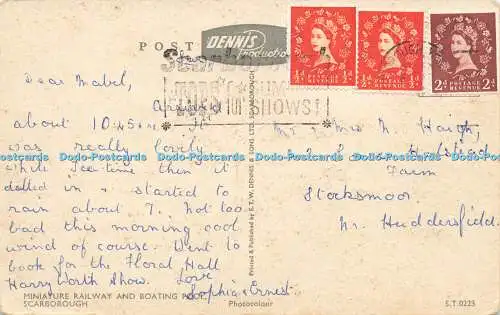 POST
DENNIS
Productions
SHOWS!
½d ½d
POSTAGE REVENUE
POSTAGE REVENUE
2d 2d
Dear Mabel,
Arrived
about 10.45am. It
was really lovely
while tea-time then it
dulled in & started to
rain about 7. Not too
bad this morning cool
wind of course. Went to
book for the Floral Hall
Harry Worth Show. Love
Sophia & Ernest
Mr & Mrs N. Haigh,
Farm
Stocksmoor
Nr. Huddersfield.
Printed & Published by E. T. W. DENNIS & SONS LTD., SCARBOROUGH
Dodo-Postcards Dodo-Postcards Dodo-Postcards Dodo-Postcards
MINIATURE RAILWAY AND BOATING POOL,
SCARBOROUGH
Photocolour
S.T.0223